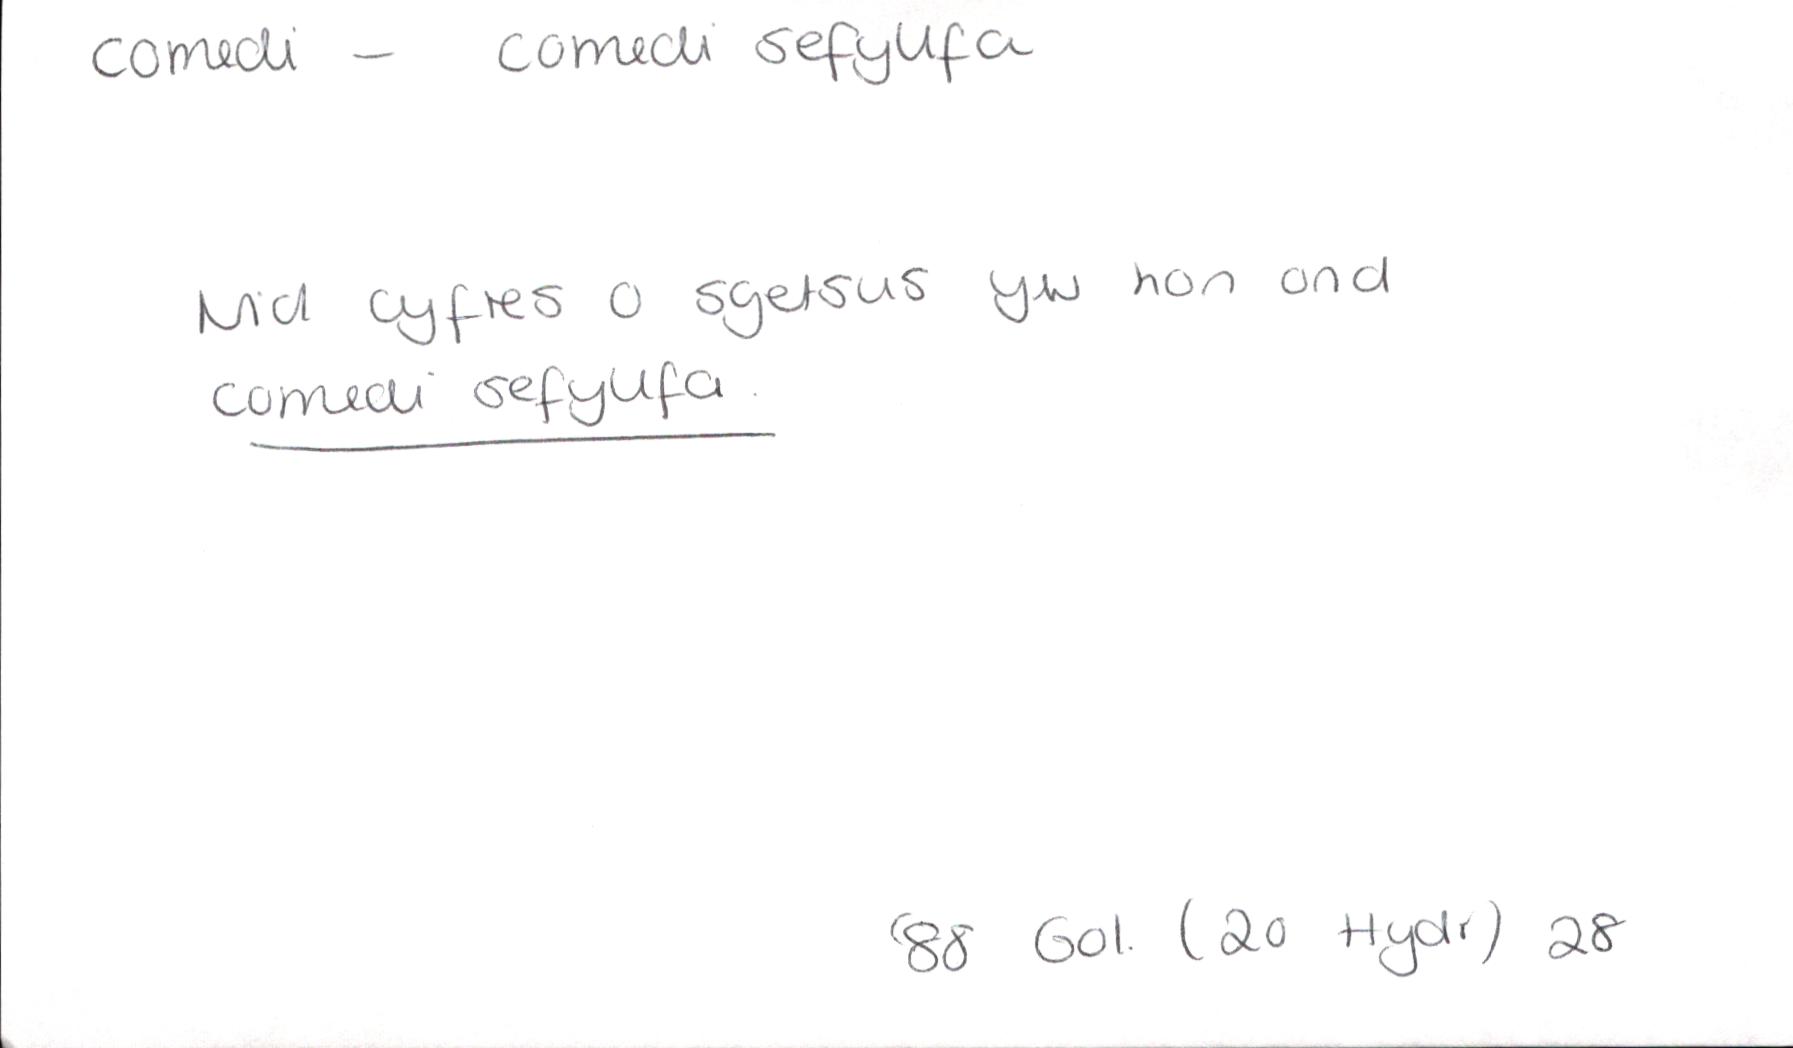 comedi - comedi sefyllfa
Nid cyfres o sgetsus yw hon ond
comedi sefyllfa.
'88 Gol. (20 Hydr) 28